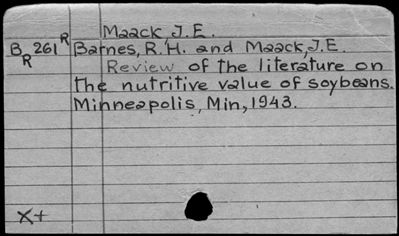 Maack, J.E.
BR261R Barnes, R.H. and Maack, J.E.
Review of the literature on
the nutritive value of soybeans.
Minneapolis, Min, 1943.
X+